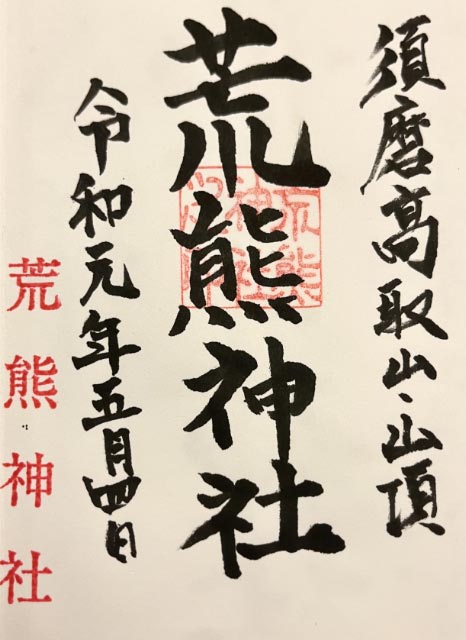 須磨高取山山頂
荒熊神社
令和元年五月四日
荒熊神社